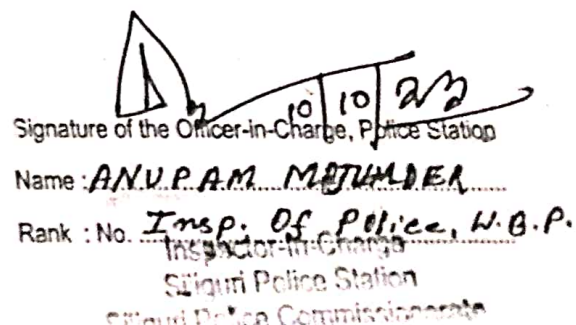 10/10/22
Signature of the Officer-in-Charge, Police Station
Name : ANUPAM MOJUMDER
Rank : No. Insp. Of Police, W.B.P.
Inspector-In-Charge
Siliguri Police Station
Siliguri Police Commissionerate